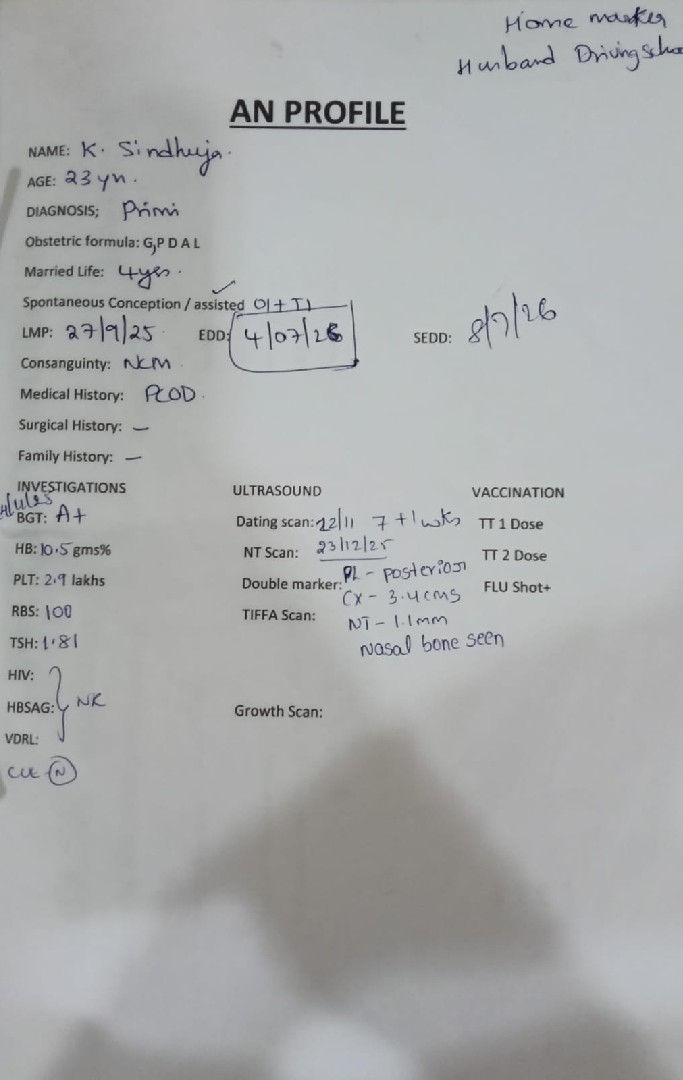 Home marker
Husband Driving scho
AN PROFILE
NAME: K. Sindhuja.
AGE: 23 yrs.
DIAGNOSIS; Primi
Obstetric formula: G,P D A L
Married Life: 4yrs.
Spontaneous Conception / assisted OI + TI
LMP: 27/9/25 EDD: 4/07/26 SEDD: 8/7/26
Consanguinty: NCM
Medical History: PCOD.
Surgical History: –
Family History: –
INVESTIGATIONS ULTRASOUND VACCINATION
BGT: A+ Dating scan: 12/11 7+1 wks TT 1 Dose
HB: 10.5 gms% NT Scan: 23/12/25 TT 2 Dose
PLT: 2.9 lakhs Double marker: PL - posterior FLU Shot+
CX - 3.4 cms
RBS: 100 TIFFA Scan: NT - 1.1mm
TSH: 1.81 Nasal bone seen
HIV:
HBSAG: NR
VDRL: Growth Scan:
CUE (N)